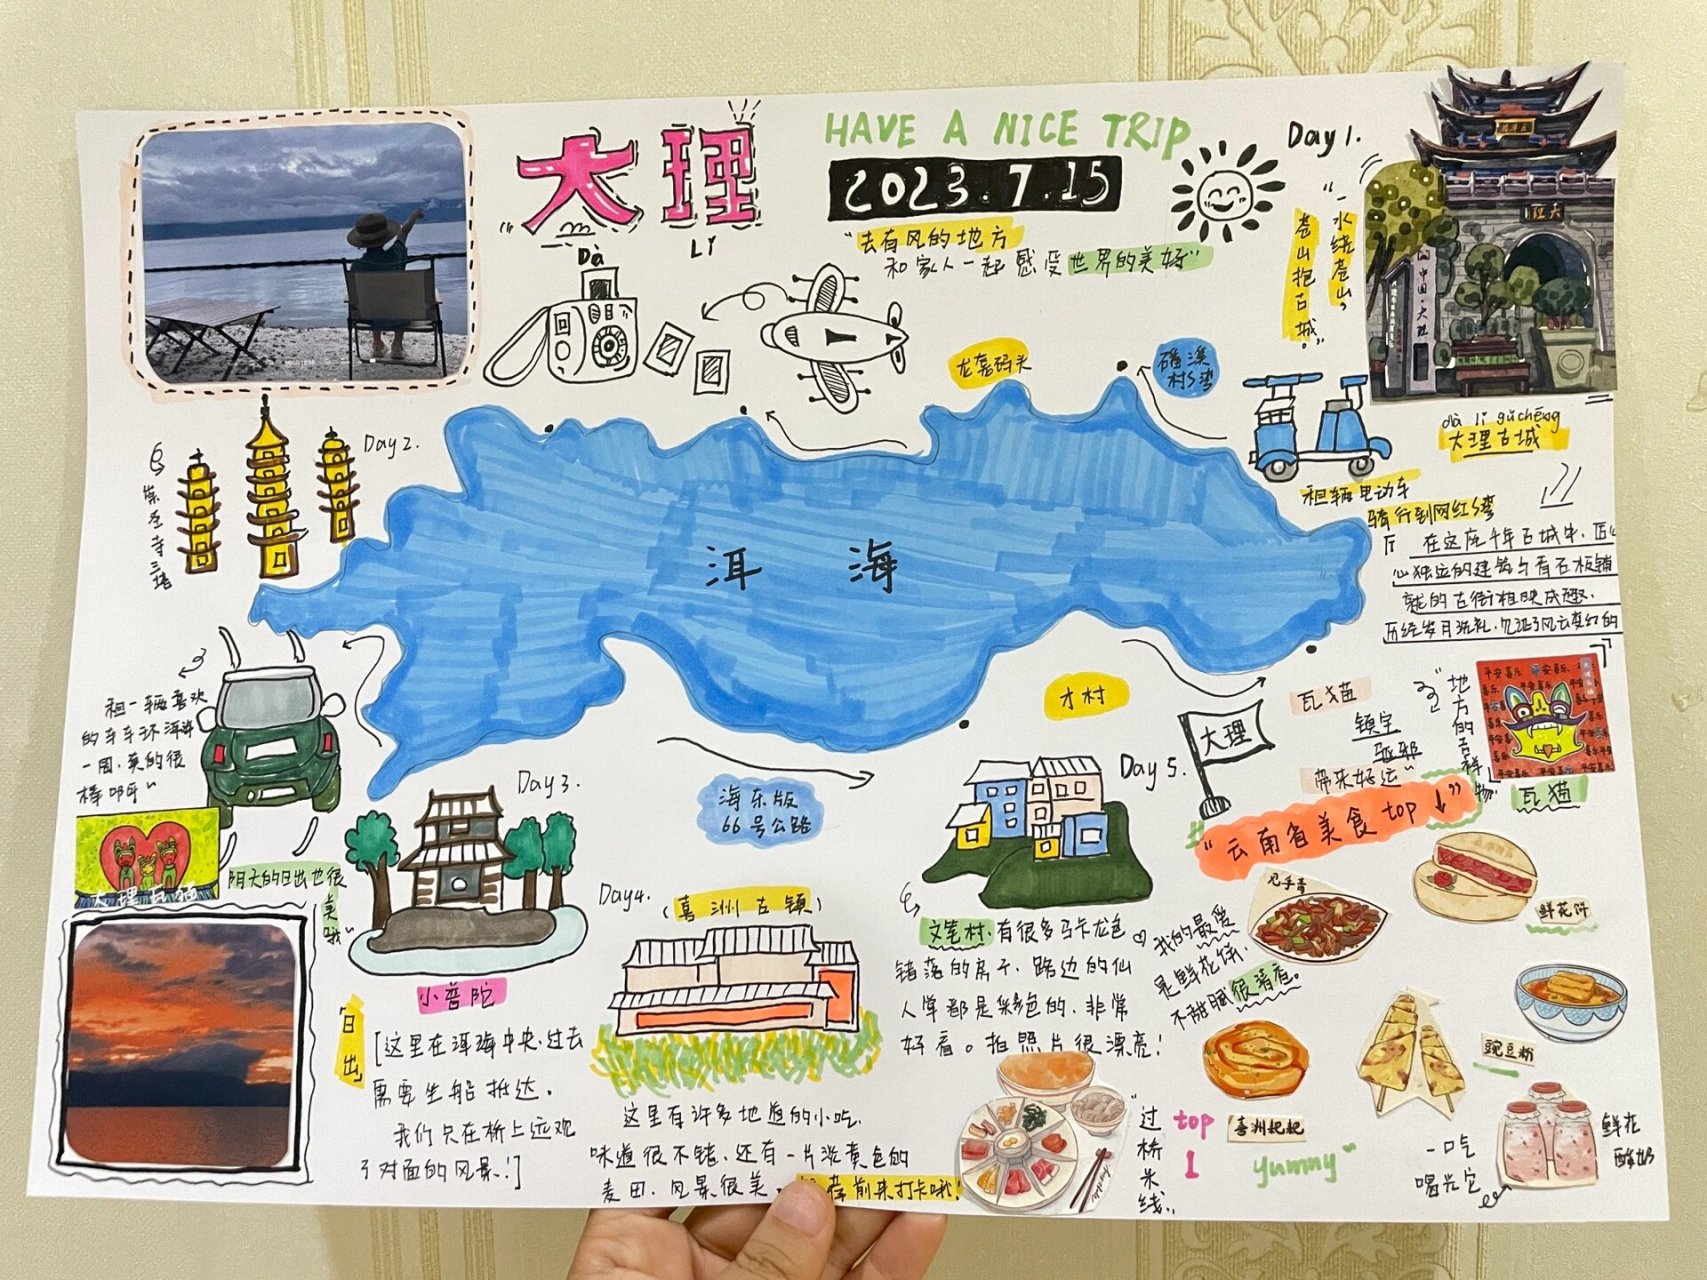 “大理
Dà Lǐ
HAVE A NICE TRIP
2023.7.15
“去有风的地方
和家人一起感受世界的美好”
Day1.
“一水绕苍山,
苍山抱古城.”
大江
中国·大理
dà lǐ gǔchéng
大理古城
龙龛码头
磻溪
村S湾
租辆电动车
骑行到网红S湾
在这座千年古城中,匠
心独立的建筑与青石板铺
就的古街相映成趣.
历经岁月洗礼,见证了风云变幻的
Day2.
崇圣寺三塔
洱海
租一辆喜欢
的车车环洱海
一周,真的很
棒啊~
大理瓦猫
阴天的日出也很
美哦~
“日出”
Day3.
小普陀
[这里在洱海中央,过去
需要坐船抵达.
我们只在桥上远观
了对面的风景!]
海东版
66号公路
Day4.
(喜洲古镇)
这里有许多地道的小吃.
味道很不错,还有一片浅黄色的
麦田.风景很美.
荐前来打卡哦!
才村
文笔村,有很多马卡龙色
错落的房子,路边的仙
人掌都是彩色的,非常
好看。拍照片很漂亮!
Day5.
大理
瓦猫
镇宅
驱邪
带来好运”
“地方的吉祥物”
平安喜乐
瓦猫
“云南省美食top↓”
我的最爱
是鲜花饼.
不甜腻很清香。
见手青
鲜花饼
豌豆粉
“过桥米线”
top
1
喜洲粑粑
yummy~
一口气
喝光它
鲜花
酸奶